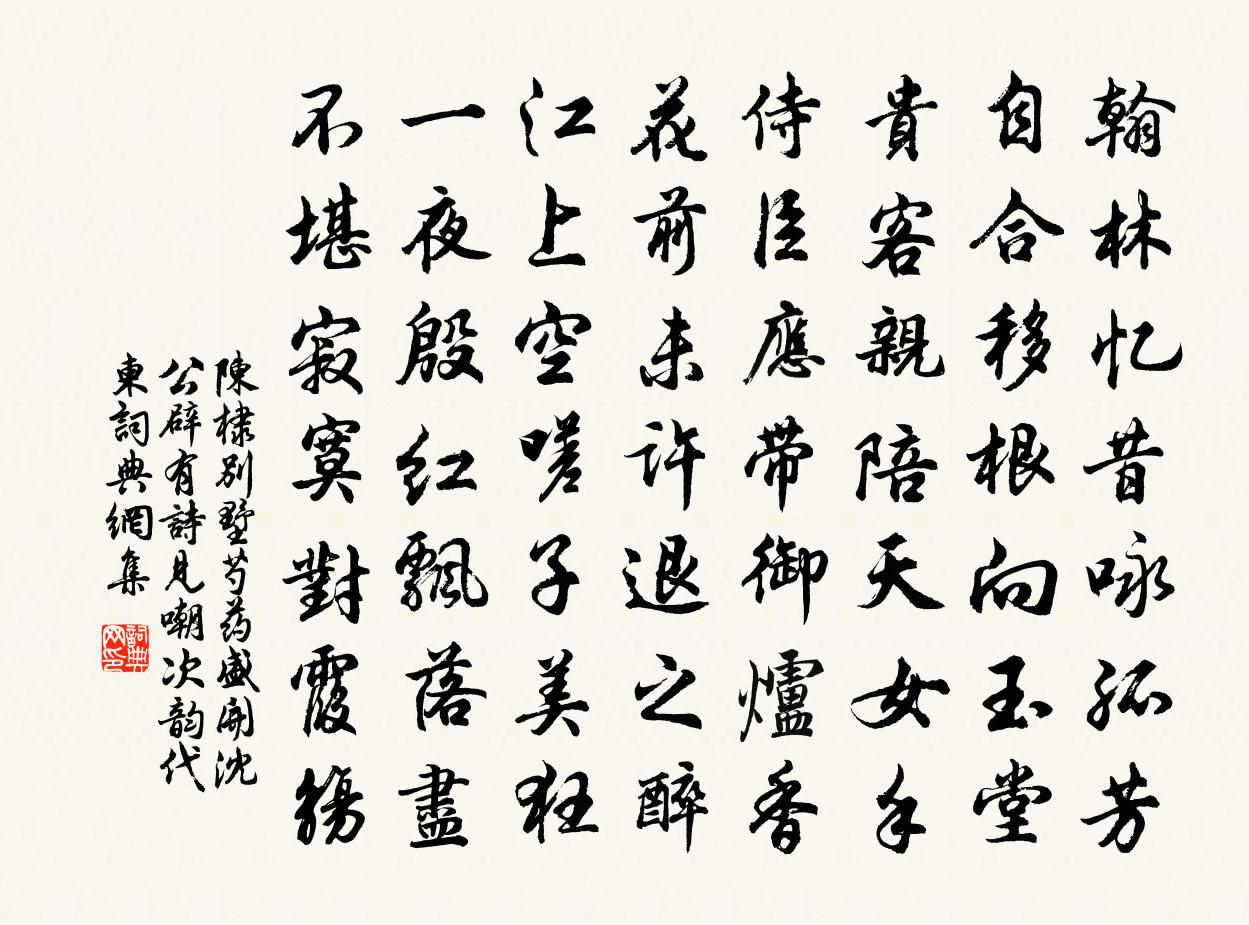 翰林忆昔咏孤芳
自合移根向玉堂
貴客親陪天女手
侍臣應带御爐香
花前未许退之醉
江上空嗟子美狂
一夜殷红飄落盡
不堪寂寞對霞觴
陳棣别墅芍药盛開沈
公辟有詩見嘲次韵代
東詞典網集
詞典
网印